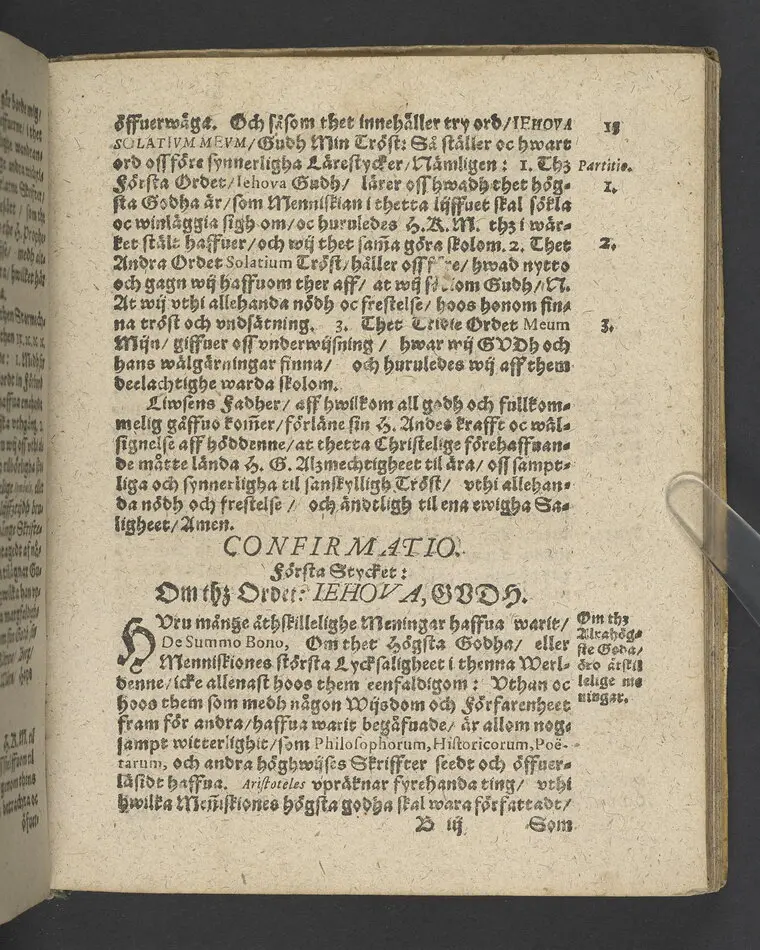 öffuerwäga. Och såsom thet innehåller try ord/IEHOVA
SOLATIVM MEVM/Gudh Min Tröst: Så ställer oc hwart
ord oss före synnerligha Lärestycker/Nämligen: 1. Thz
Första Ordet/Iehova Gudh/ lärer oss hwadh thet hög-
sta Godha är/som Menniskian i thetta lijffuet skal sökia
oc winläggia sigh om/oc huruledes H. K. M. thz i wär-
ket stält haffuer/och wij thet sam̃a göra skolom. 2. Thet
Andra Ordet Solatium Tröst/håller oss före/hwad nytto
och gagn wij haffuom ther aff/ at wij Gudh/N.
At wij vthi allehanda nödh oc frestelse/ hoos honom fin-
na tröst och vndsätning. 3. Thet Tridie Ordet Meum
Mijn/ giffuer oss vnderwijsning / hwar wij GVDh och
hans wälgärningar finna/ och huruledes wij aff them
deelachtighe warda skolom.
Liwsens Fadher/ aff hwilkom all godh och fullkom-
melig gåffuo kom̃er/förläne sin H. Andes krafft oc wäl-
signelse aff höddenne/at thetta Christelige förehaffuan-
de måtte lända H. G. Alzmechtigheet til ära/ oss sampt-
liga och synnerligha til sanskylligh Tröst/ vthi allehan-
da nödh och frestelse/ och ändtligh til ena ewigha Sa-
ligheet/Amen.
CONFIRMATIO.
Första Stycket:
Om thz Ordet: IEHOVA, GVDH.
HVru månge åthskillelighe Meningar haffua warit/
De Summo Bono, Om thet Högsta Godha/ eller
Menniskiones största Lycksaligheet i thenna Werl-
denne/icke allenast hoos them eenfaldigom: Vthan oc
hoos them som medh någon Wijsdom och Förfarenheet
fram för andra/haffua warit begåfuade/ är allom nog-
sampt witterlighit/som Philosophorum, Historicorum, Poë-
tarum, och andra höghwijses Skriffter seedt och öffuer-
läsidt haffua. Aristoteles vpräknar fyrehanda ting/ vthi
hwilka Men̄iskiones högsta godha skal wara författadt/
B iij Som
Partitio.
1.
2.
3.
Om thz
Alrahög-
ste Goda/
äro åtskil
lelige me
ningar.